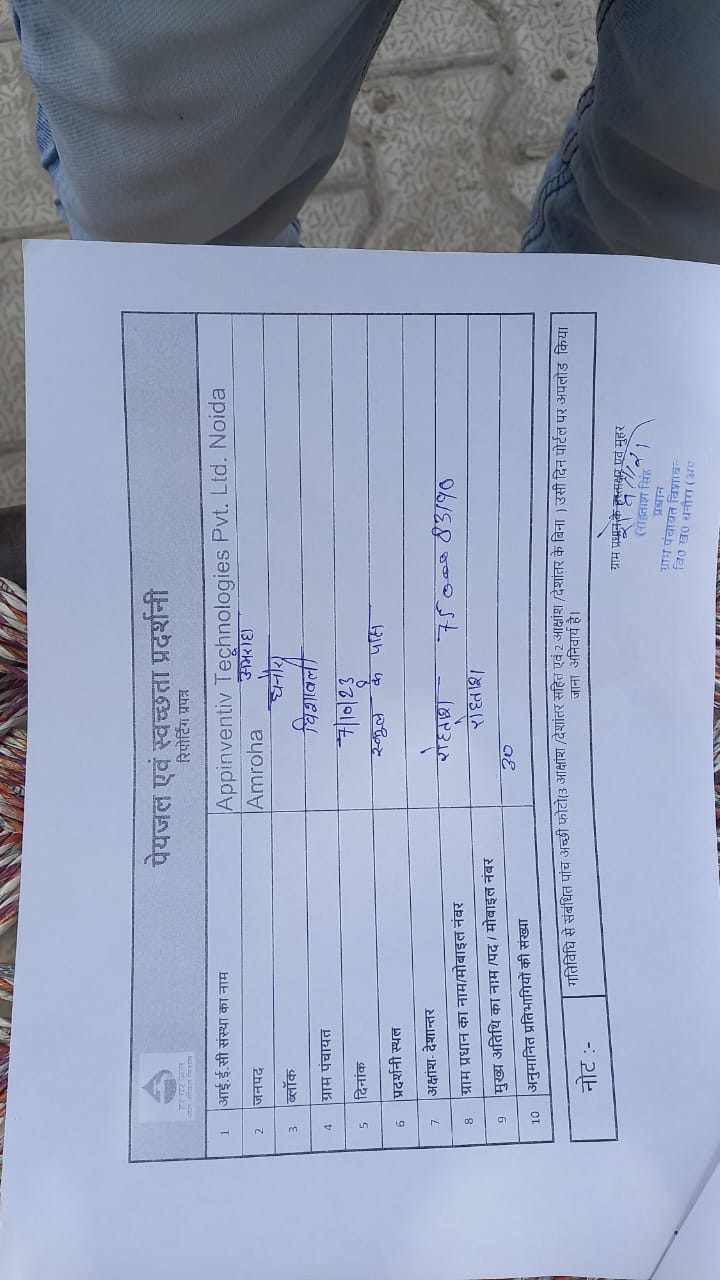 हर घर जल
जल जीवन मिशन
पेयजल एवं स्वच्छता प्रदर्शनी
रिपोर्टिंग प्रपत्र
1 आई.ई.सी संस्था का नाम Appinventiv Technologies Pvt. Ltd. Noida
2 जनपद Amroha अमरोहा
3 ब्लॉक धनौरा
4 ग्राम पंचायत विशावली
5 दिनांक 7/10/23
6 प्रदर्शनी स्थल स्कूल के पास
7 अक्षांश- देशान्तर
8 ग्राम प्रधान का नाम/मोबाईल नंबर रोहताश -
9 मुख्य अतिथि का नाम /पद / मोबाईल नंबर रोहताश
10 अनुमानित प्रतिभागियों की संख्या 30
नोट :- गतिविधि से संबंधित पांच अच्छी फोटो(3 आक्षांश /देशांतर सहित एवं 2 आक्षांश /देशांतर के बिना ) उसी दिन पोर्टल पर अपलोड किया
जाना अनिवार्य है।
ग्राम प्रधान के हस्ताक्षर एवं मुहर
(रोहताश सिंह
प्रधान
ग्राम पंचायत विशाव
वि० ख० धनौरा (अ